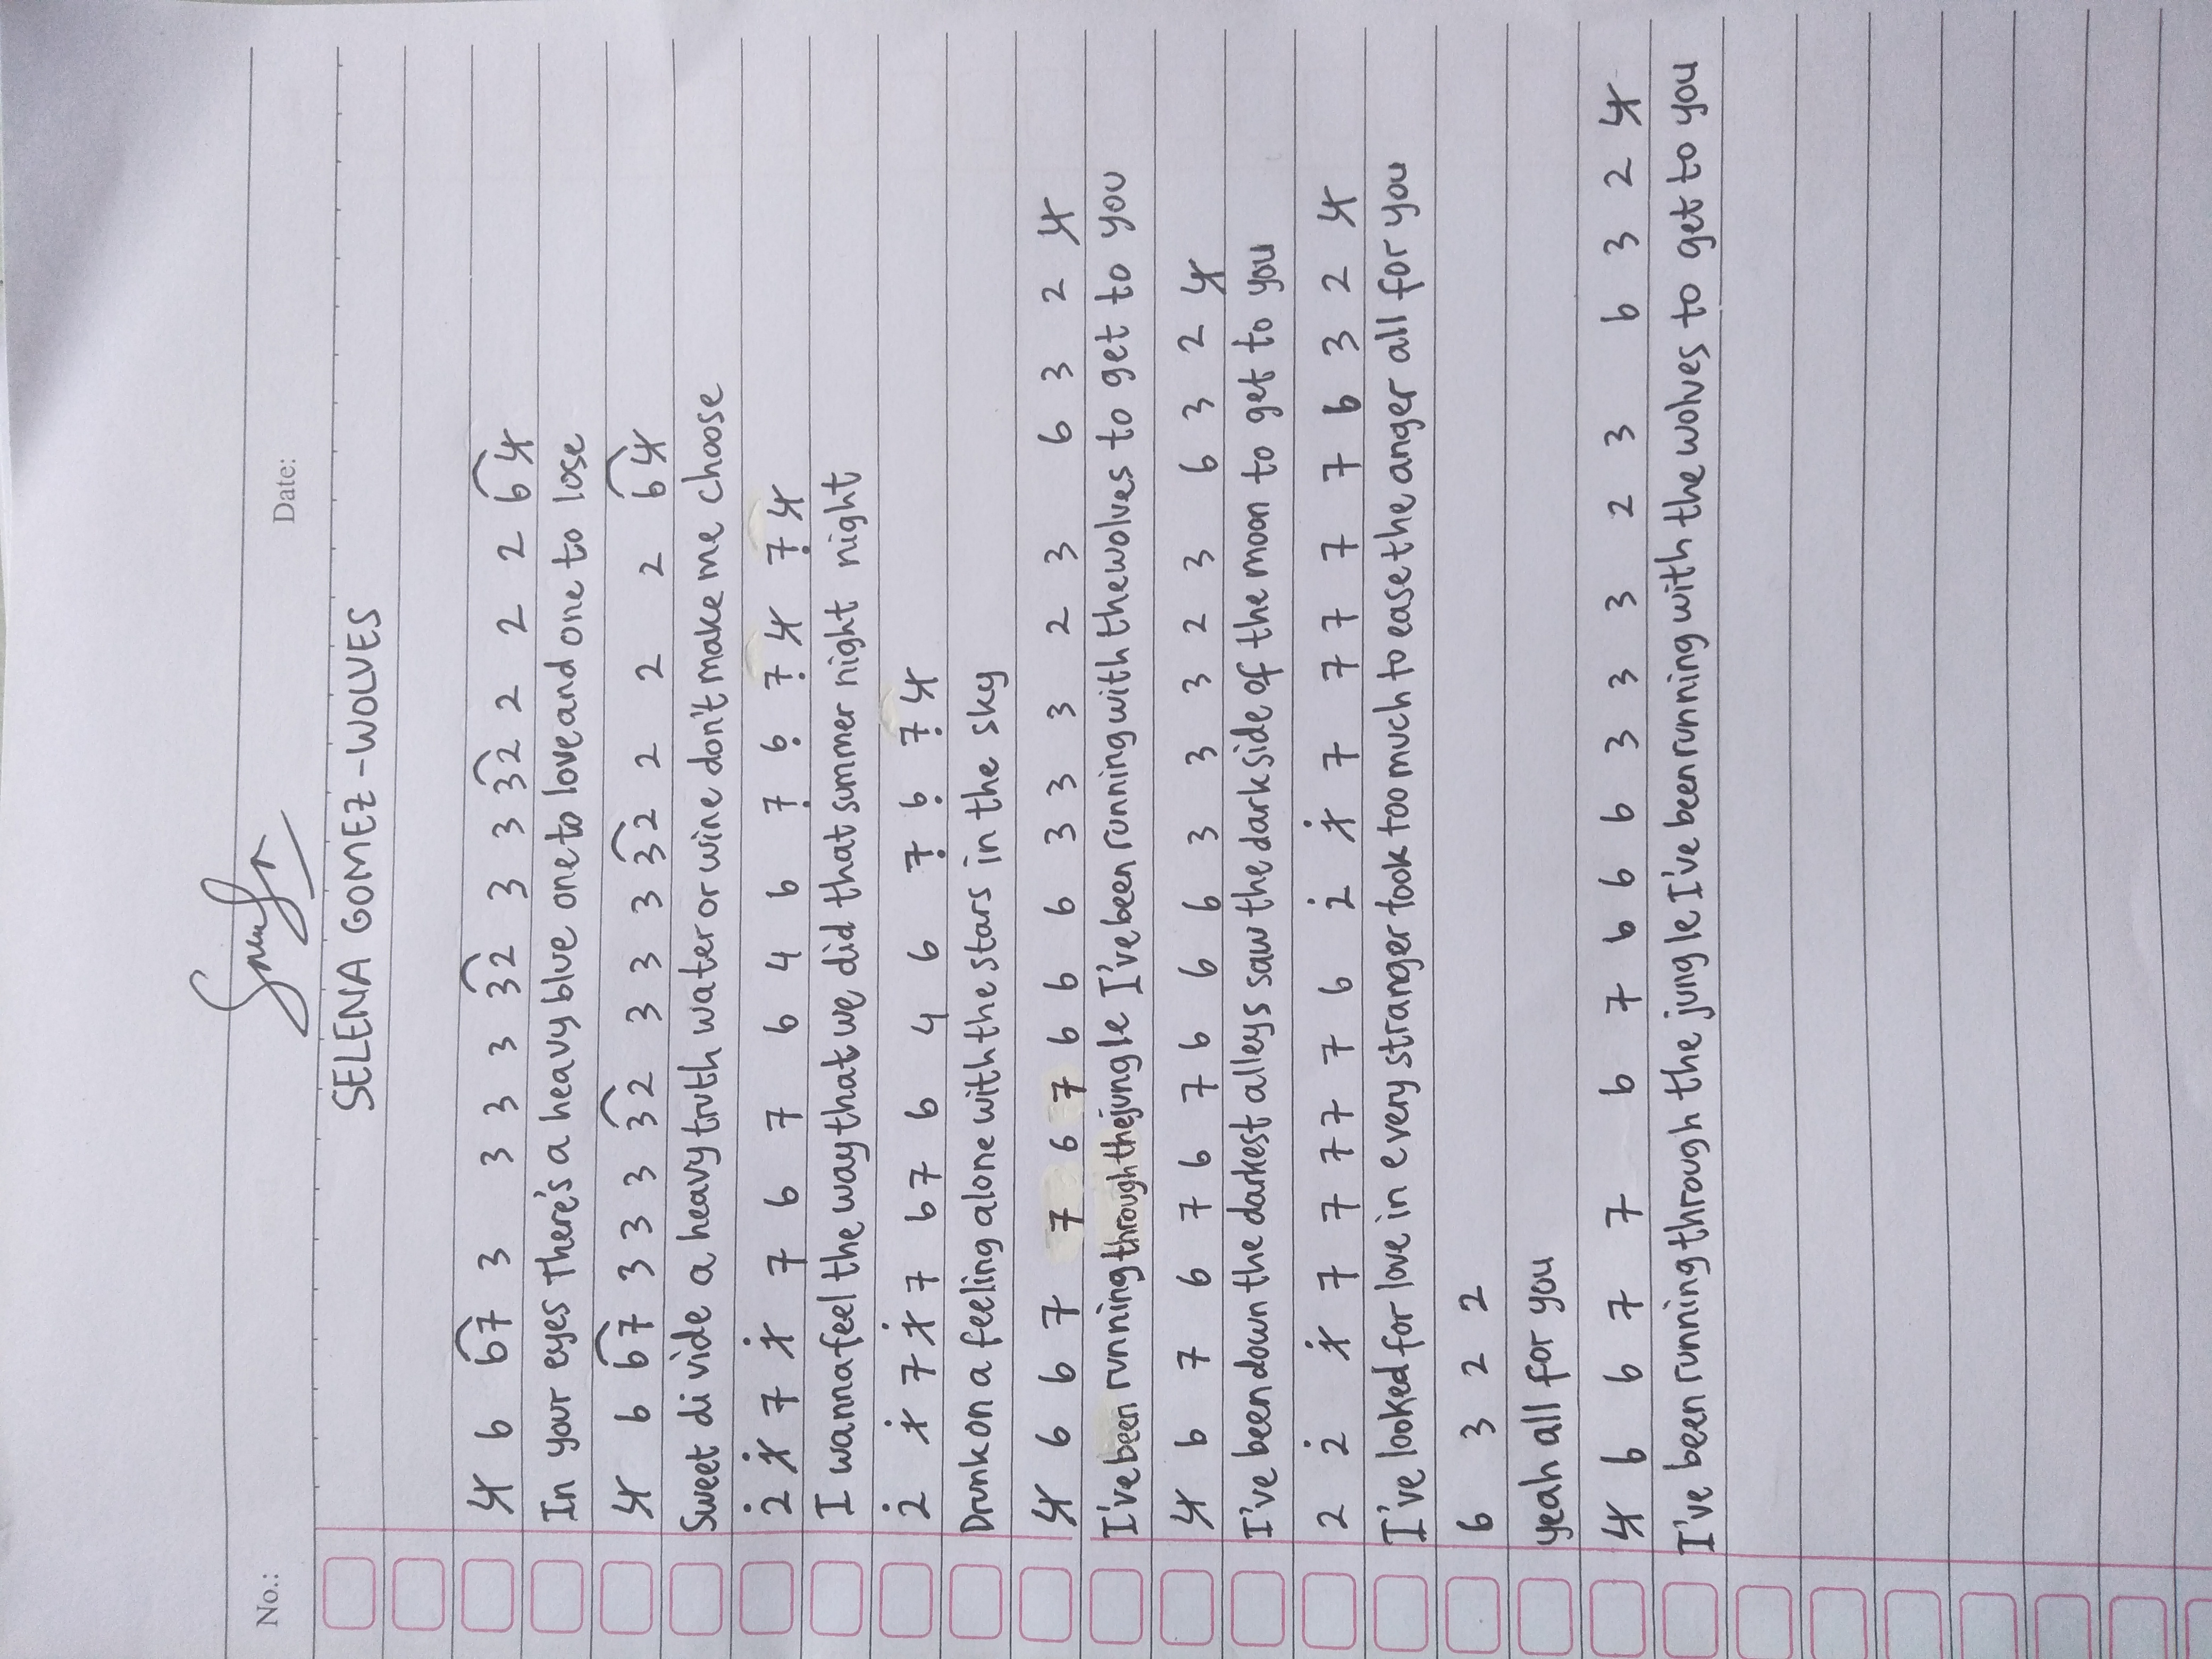 No.:
Date:
SELENA GOMEZ - WOLVES
4̸ 6 67 3 3 3 3 32 3 3 32 2 2 2 64̸
In your eyes There's a heavy blue one to love and one to lose
4̸ 6 67 3 3 3 32 3 3 3 32 2 2 2 64̸
Sweet di vide a heavy truth water or wine don't make me choose
2̇ 1̸̇ 7 1̸̇ 7 6 7 6 4 6 7̣ 6̣ 7̣4̸ 7̣4̸
I wanna feel the way that we did that summer night night
2̇ 1̸̇ 7 1̸̇ 7 6 7 6 4 6 7̣ 6̣ 7̣4̸
Drunk on a feeling alone with the stars in the sky
4̸ 6 6 7 7 6 7 6 6 6 3 3 3 2 3 6 3 2 4̸
I've been running through the jungle I've been running with the wolves to get to you
4̸ 6 7 6 7 6 7 6 6 6 3 3 3 2 3 6 3 2 4̸
I've been down the darkest alleys saw the dark side of the moon to get to you
2 2̇ 1̸̇ 7 7 7 7 7 6 2̇ 1̸̇ 7 7 7 7 7 6 3 2 4̸
I've looked for love in every stranger took too much to ease the anger all for you
6 3 2 2
yeah all for you
4̸ 6 6 7 7 6 7 6 6 6 3 3 3 2 3 6 3 2 4̸
I've been running through the jungle I've been running with the wolves to get to you